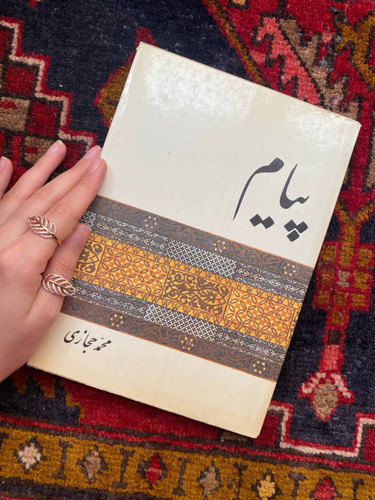 پیام
محمد حجازی